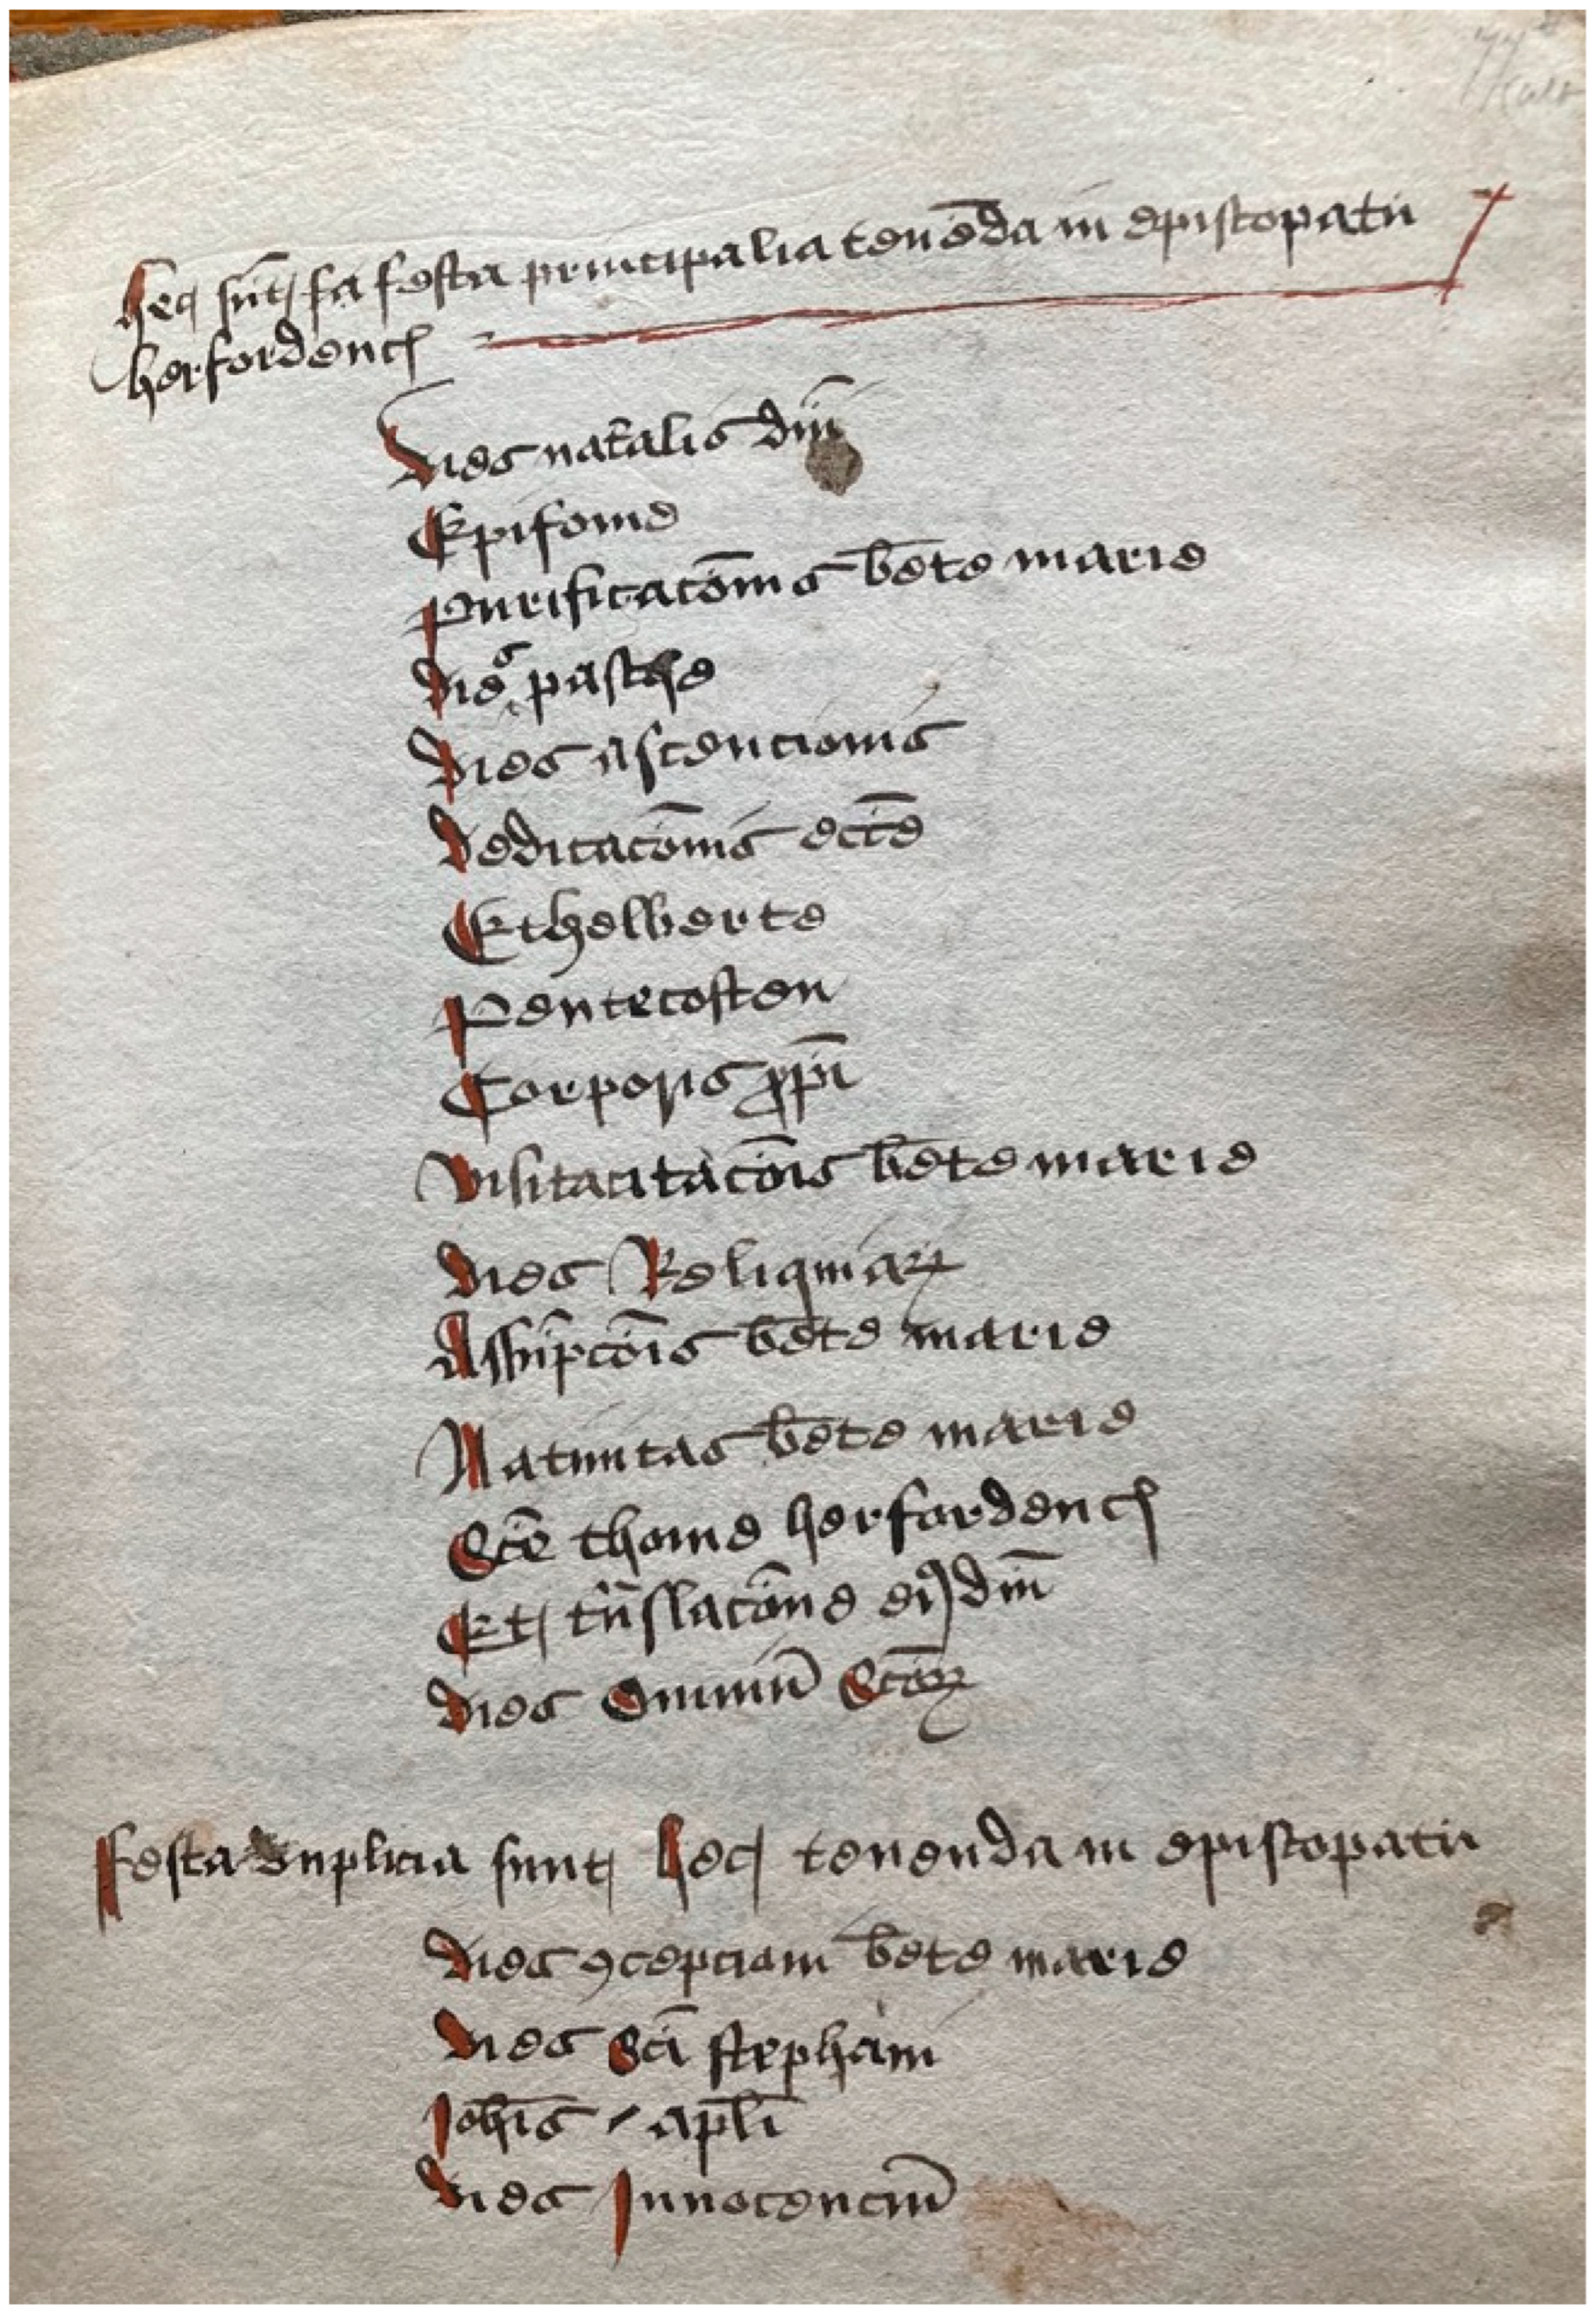 hec sūt fa festa principalia tenēda in episcopatu
herfordenc
Dies natalis dn̄i
Epifonie
Purificacōnis bēte marie
dies pasche
Dies ascencionis
Dedicacōnis eccīe
Ethelberte
Pentecosten
Corporis xp̄i
Visitacitacōis bēte marie
Dies Reliquiaꝝ
Assūpcōis bēte marie
Natiuitas bēte marie
Scē thome herfordenc
Et trāslacōne eiꝰdm̄
Dies Omniū Scōꝝ
Festa duplicia sunt hec tenenda in episcopatu
Dies ꝯcepcioni bēte marie
Dies Scī stephani
Joh̄is apl̄i
Dies Innocenciū